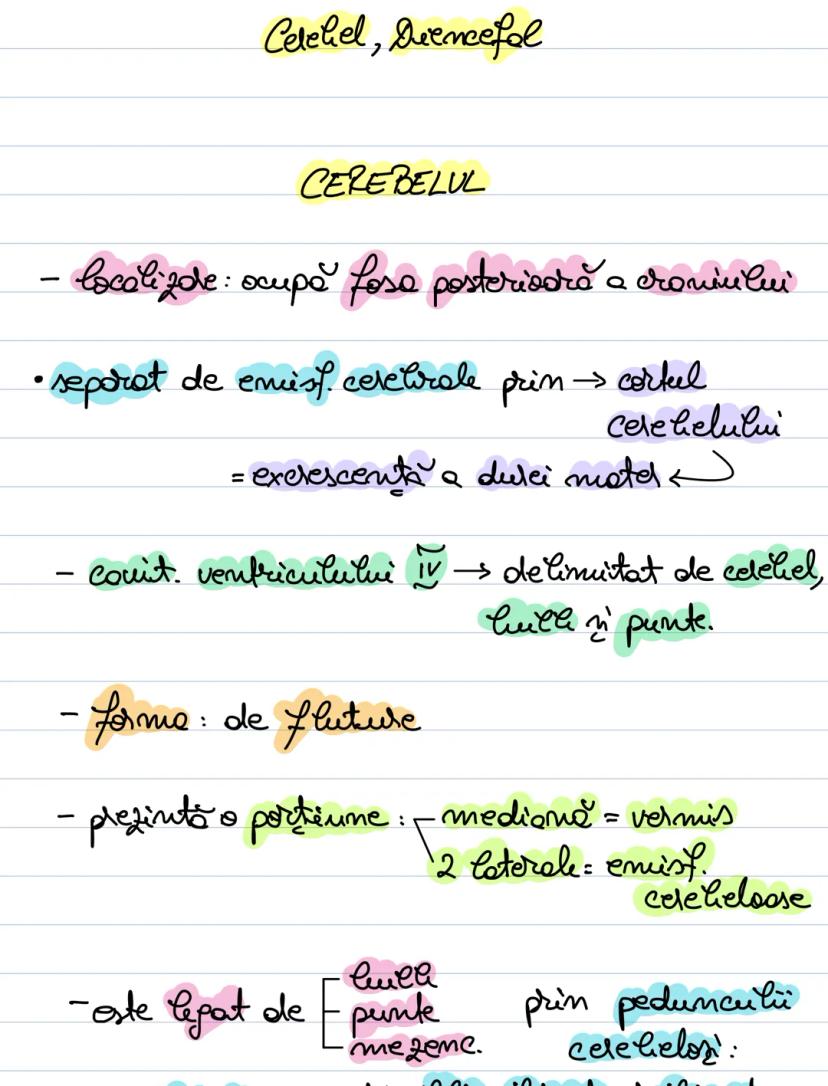 Cerebel, Diencefal
CEREBELUL
- localizare: ocupă fosa posterioară a craniului
• separat de emisf. cerebrale prim → cortul
cerebelului
= excrescență a durei mater ←
- cavit. ventriculului IV → delimitat de cerebel,
bulb și punte.
- forma: de fluture
- prezintă o porțiune: - mediană = vermis
2 laterale = emisf.
cerebeloase
- este legat de bulb
punte
mezenc.
prin pedunculii
cerebeloși: